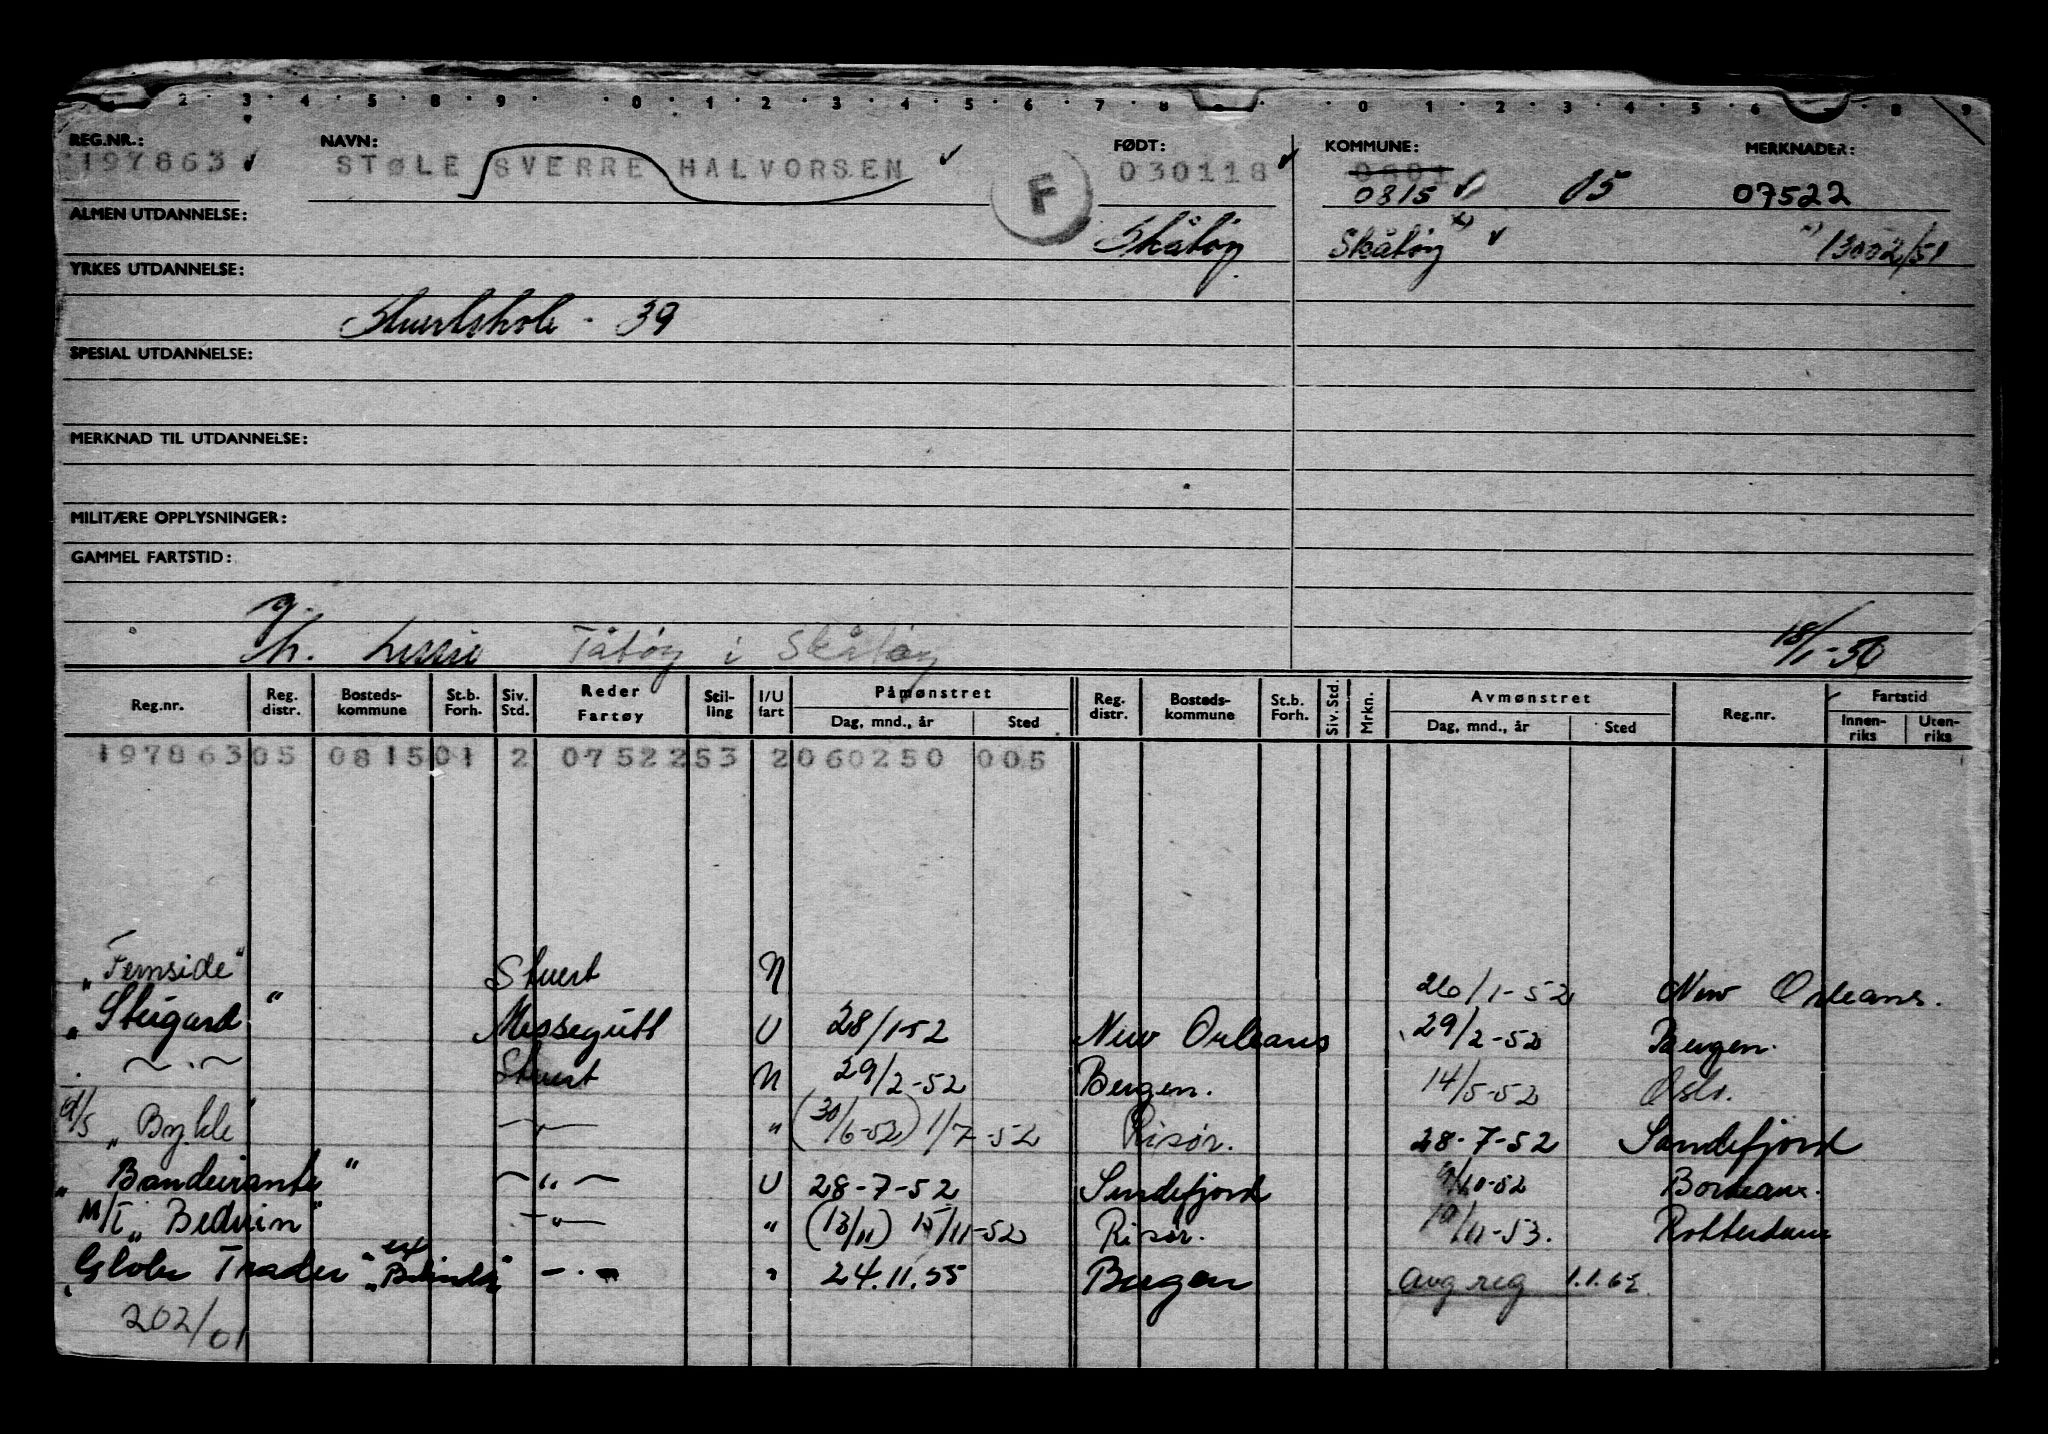 REG.NR.: NAVN: FØDT: KOMMUNE: MERKNADER:
197863 STØLE SVERRE HALVORSEN F 030118 0801
0815 05 07522
ALMEN UTDANNELSE: Skåtøy Skåtøy x) x) 13002/51
YRKES UTDANNELSE:
Stuertskole - 39
SPESIAL UTDANNELSE:
MERKNAD TIL UTDANNELSE:
MILITÆRE OPPLYSNINGER:
GAMMEL FARTSTID:
g.
Tåtøy i Skåtøy 18/1-50
Reg.nr. Reg. distr. Bosteds-kommune St.b. Forh. Siv. Std. Reder Fartøy Stil-ling I/U fart Påmønstret Dag, mnd., år Sted Reg. distr. Bosteds-kommune St.b. Forh. Siv. Std. Mrkn. Avmønstret Dag, mnd., år Sted Reg.nr. Fartstid Innen-riks Uten-riks
197863 05 0815 01 2 07522 53 2 060250 005
"Fernside" Stuert N 26/1-52 New Orleans.
"Steigard" Messegutt U 28/1-52 New Orleans 29/2-52 Bergen.
— " — Stuert N 29/2-52 Bergen. 14/5-52 Oslo.
d/s "Bykle" — " — " (30/6-52) 1/7-52 Risør. 28-7-52 Sandefjord
"Bandeirante" — " — U 28-7-52 Sandefjord 9/10-52 Bordeaux.
M/T "Beduin" — " — " (13/11) 15/11-52 Risør. 19/11-53. Rotterdam
"Globe Trader" ex "Belinda" — " — " 24.11.55 Bergen Avg reg 1.1.62
202/01